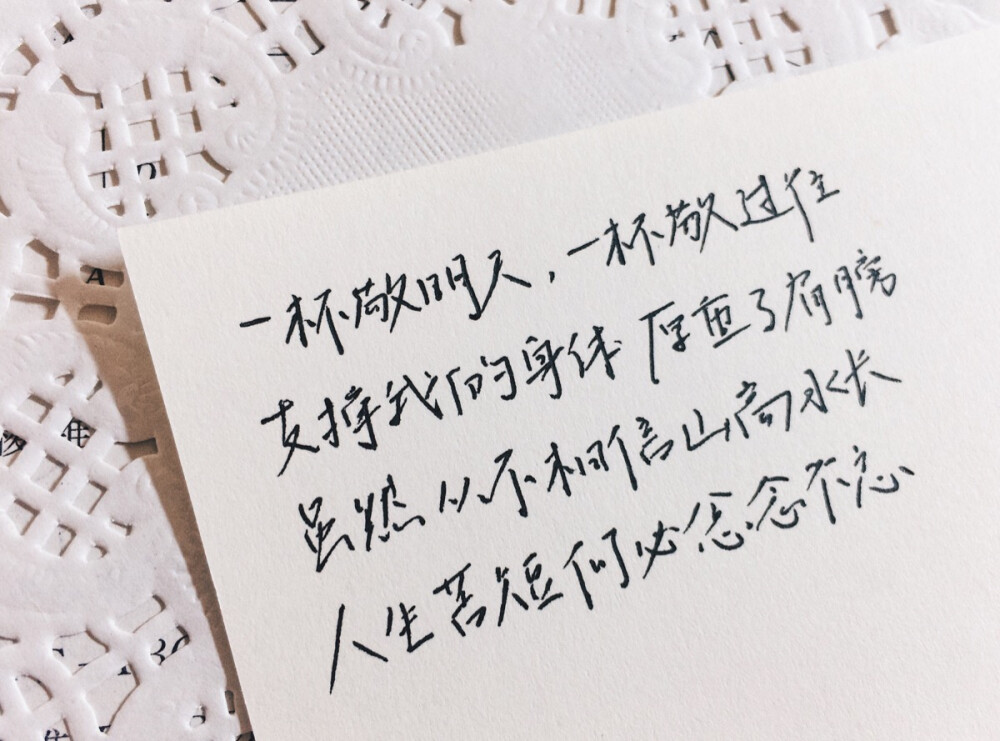 一杯敬明天，一杯敬过往
支撑我的身体 厚重了肩膀
虽然从不相信山高水长
人生苦短何必念念不忘